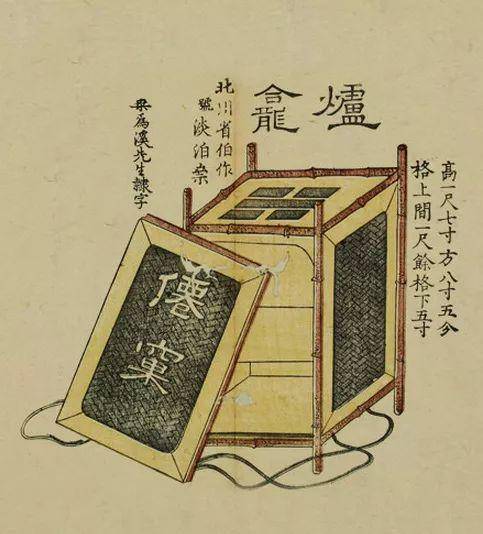 爐龕
高一尺七寸方八寸五分
格上間一尺餘格下五寸
北川省伯作
號淡泊
為溪先生隸字
僊窠